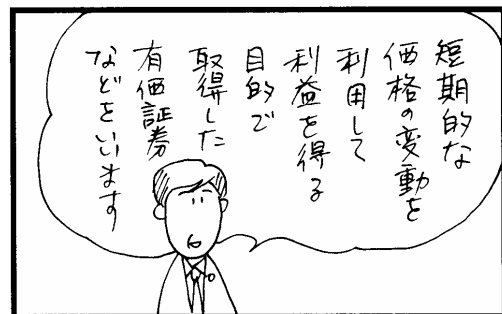 短期的な
価格の変動を
利用して
利益を得る
目的で
取得した
有価証券
などをいいます